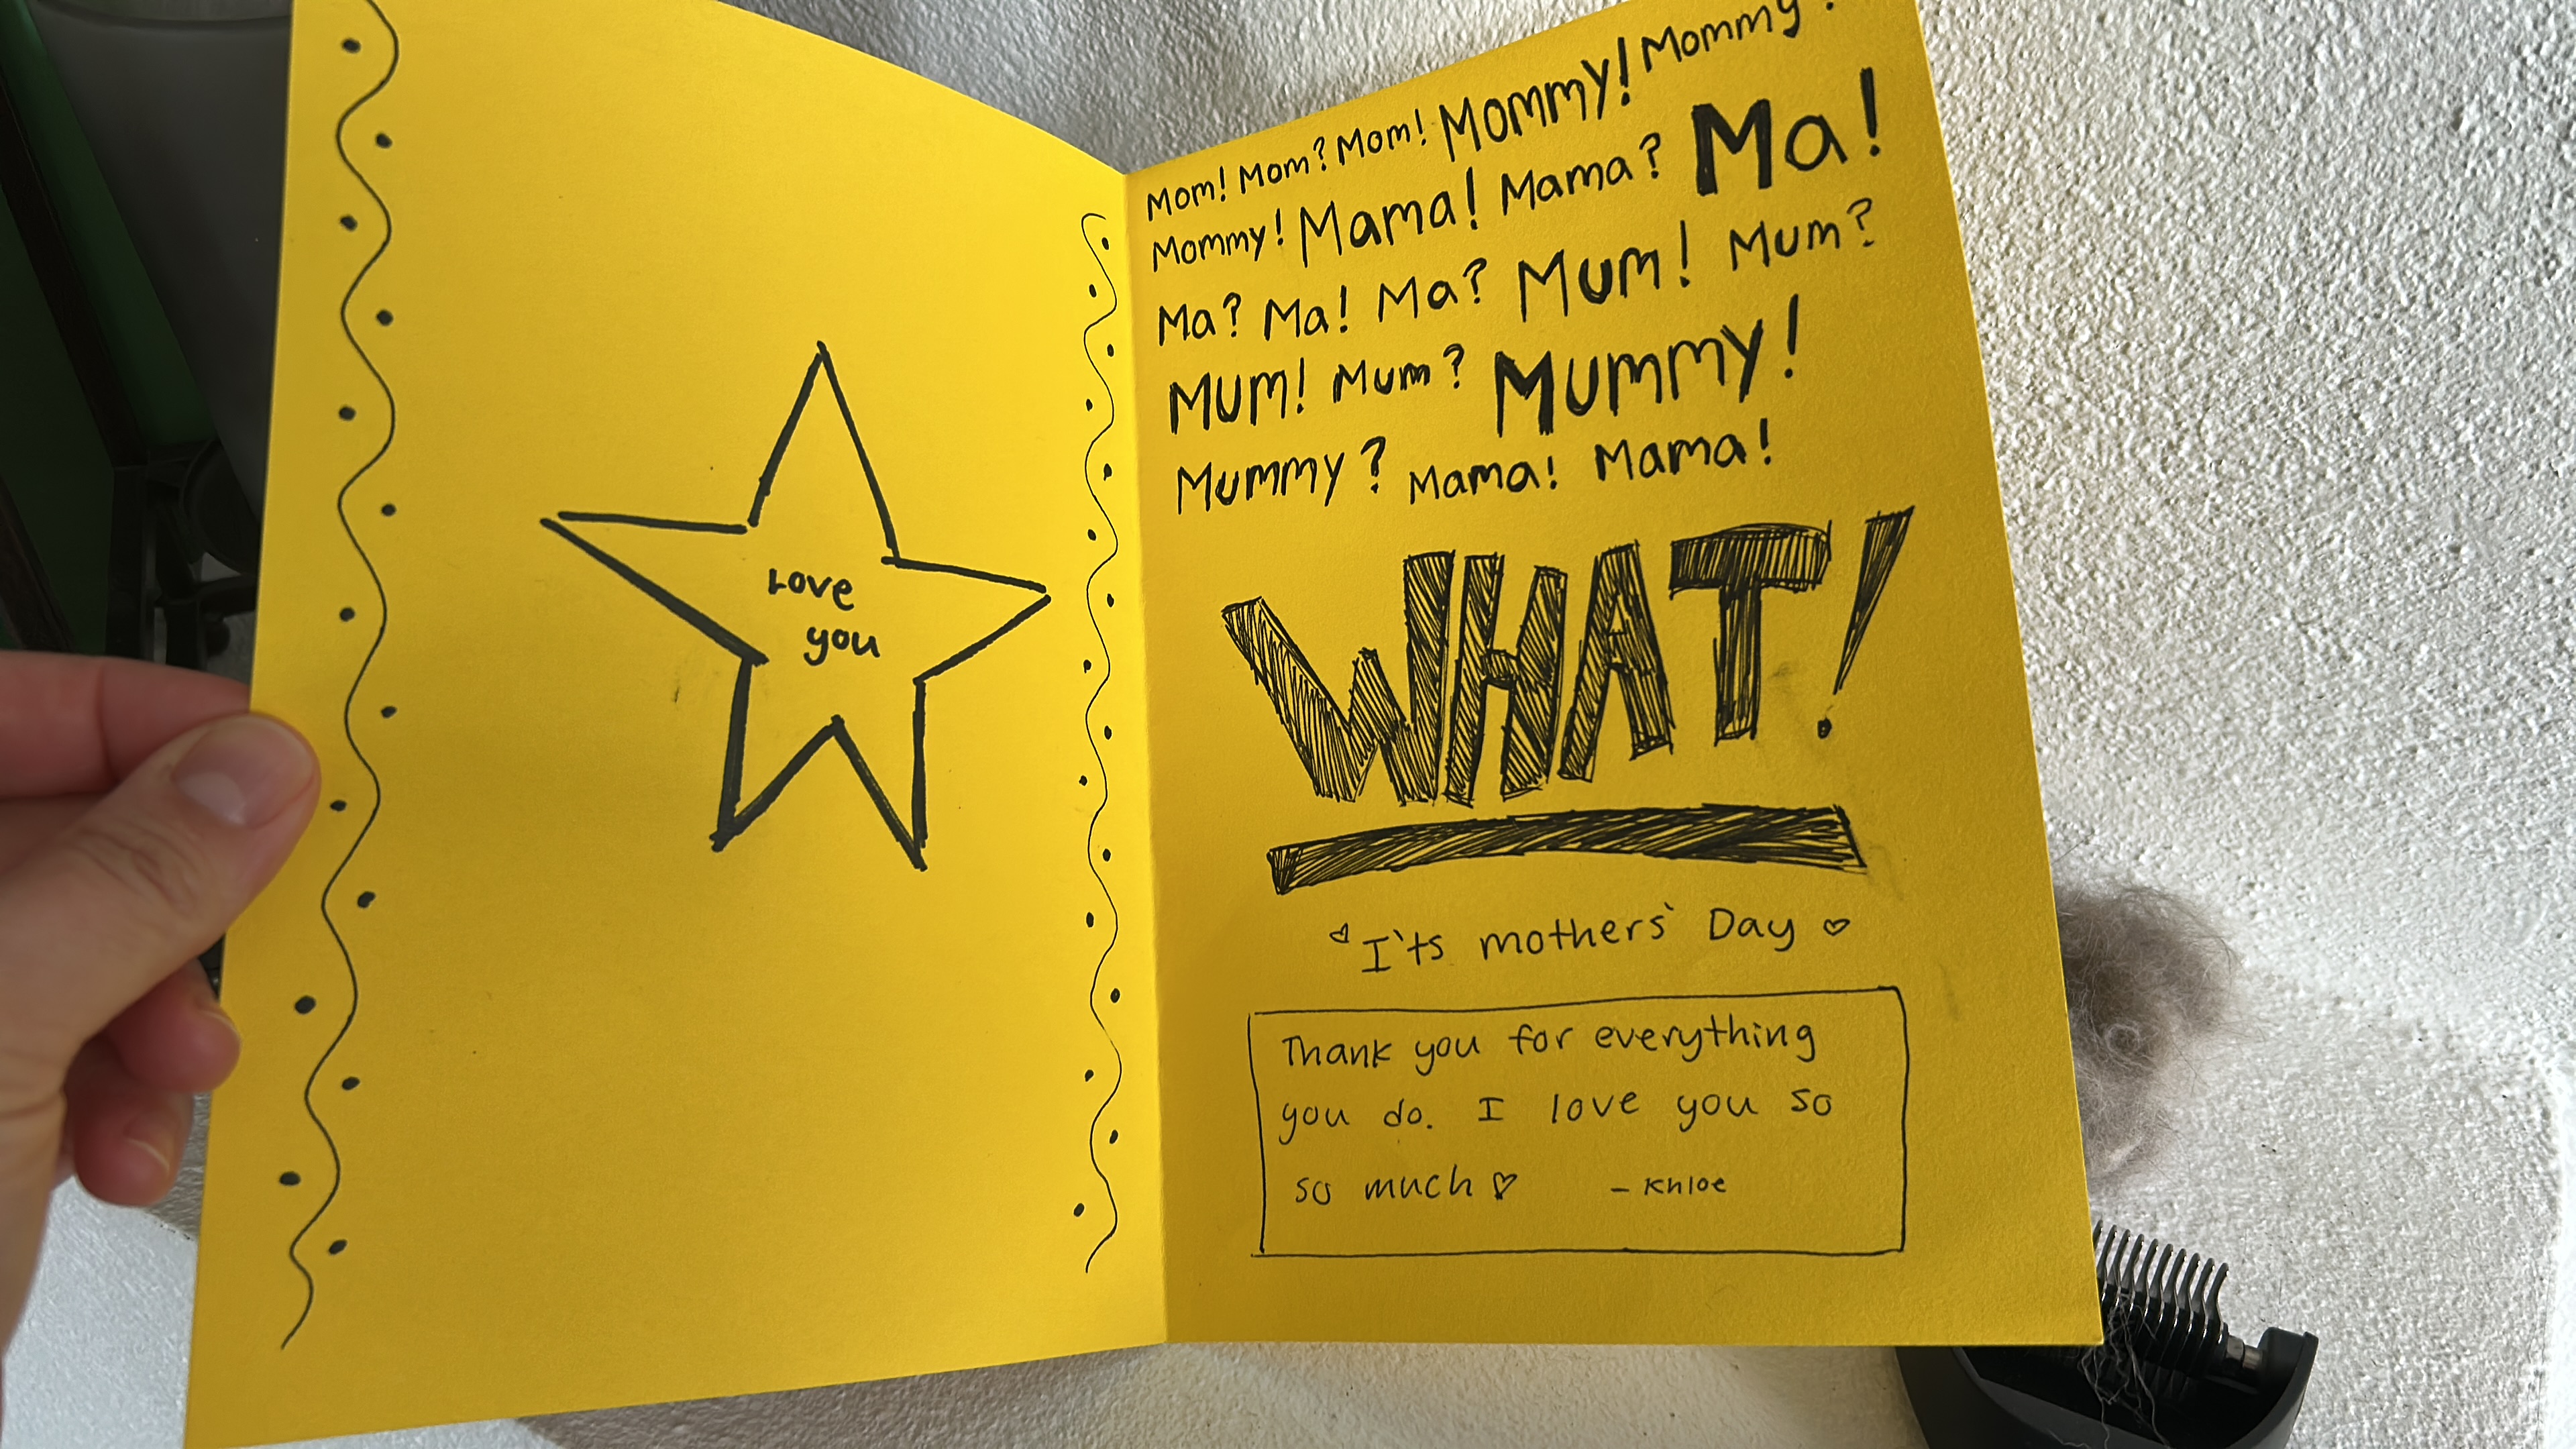 Love
you
Mom! Mom? Mom! Mommy! Mommy!
Mommy! Mama! Mama? Ma!
Ma? Ma! Ma? Mum! Mum?
Mum! Mum? Mummy!
Mummy? Mama! Mama!
WHAT!
I'ts mothers' Day
Thank you for everything
you do. I love you so
so much
- Khloe